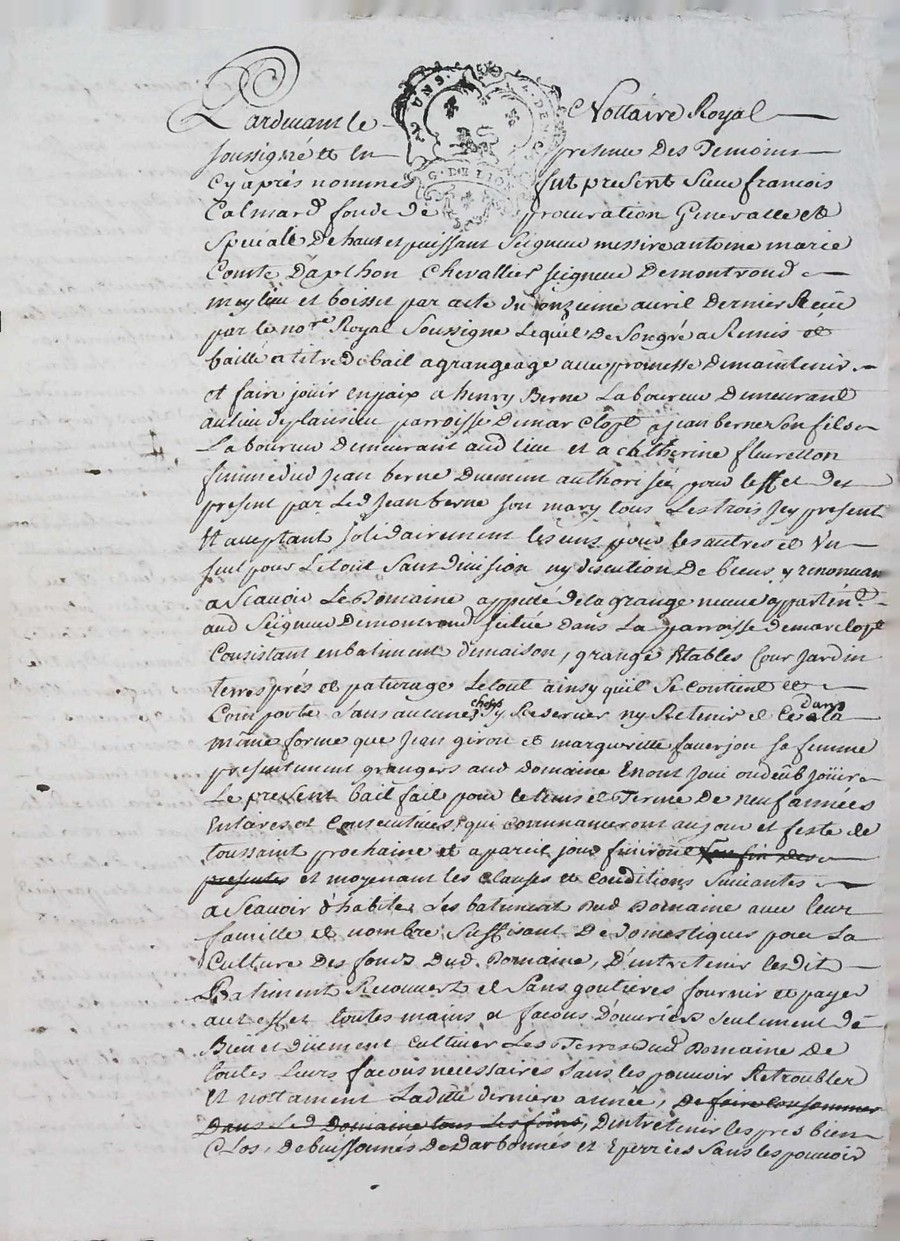 Pardevant le Nottaire Royal
soussigné et en presence des temoins
cy après nommés fut present Sieur francois
Calmard fondé de procuration Generalle et
Speciale de haut et puissant Seigneur messire antoine marie
Comte Dapchon Chevallier seigneur Demontrond
meylieu et boisset par acte du onzieme avril dernier Receu
par le no.re Royal Soussigne Lequel de Son gré a Remis et
baillé a titre de bail a grangeage avec promesse de maintenir
et faire jouir en paix a henry Berne Laboureur Demeurant
au lieu de plancieu parroisse de marclopt a jean berne Son fils
Laboureur demeurant aud lieu et a Catherine fleuretton
femme dud jean berne Duement authorisée pour leffet des
present par Led jean berne son mary tous Les trois jcy present
et acceptant solidairement les uns pour les autres et Un
seul pour Le tout Sans division ny discution de biens y renoncan
a Scavoir Le Domaine appellé de la grange neuve appartén.t
aud Seigneur Demontrond situé dans La parroisse de marclopt
Consistant en batiment de maison, grange Etables Cour jardin
terres prés et paturage Le tout ainsy quil Se contient et
Comporte Sans aucune chose y Reserver ny Retenir et de la dans
même forme que jean giron et margueritte faverjon sa femme
presentement grangers aud Domaine En ont joui ou deub joüir
Le present bail fait pour le tems et Terme de neuf années
Entieres et Consecutives qui commanceront au jour et feste de
toussaint prochaine et a pareil jour finiront fin des
presentes et moyenant les clauses et conditions Suivantes
a Scavoir d'habiter Les batiment dud Domaine avec leur
famille et nombre suffisant De domestiques pour La
Culture Des fonds Dud. Domaine, D'entretenir lesdit
Batiment Recouvert et Sans goutieres fournir et payer
a cet effet toutes mains et facons d'ouvriers seulement de
Bien et düement cultiver Les Terres dud Domaine de
toutes leurs facons necessaires Sans les pouvoir Retroubler
et nottament Laditte derniere année, de faire consommer
dans Led Domaine tous Les foins, d'entretenir les prés bien
Clos, debuissonnés dedarbonnés et Eperriés Sans les pouvoir